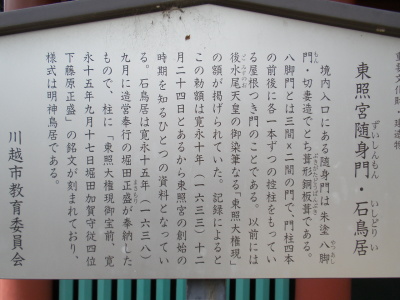 重要文化財・建造物
東照宮随身門・石鳥居
ずいしんもん
いしどりい
境内入口にある随身門は朱塗八脚
もん
やつあし
門・切妻造でとち葺形銅板葺である。
八脚門とは三間×二間の門で、門柱四本
の前後に各一本ずつの控柱をもってい
る屋根つき門のことである。以前には
後水尾天皇の御染筆なる「東照大権現」
の額が掲げられていた。記録によると
この勅額は寛永十年（一六三三）十二
月二十四日とあるから東照宮の創始の
時期を知るひとつの資料となってい
る。石鳥居は寛永十五年（一六三八）
九月に造営奉行の堀田正盛が奉納した
もので、柱に「東照大権現御宝前、寛
永十五年九月十七日堀田加賀守従四位
下藤原正盛」の銘文が刻まれており、
様式は明神鳥居である。
川越市教育委員会